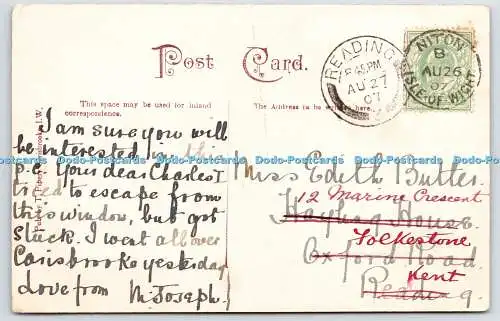 Post Card.
This space may be used for inland
correspondence.
The Address to be written here.
I am sure you will
be interested in this
p.c. Your dear Charles I
tried to escape from
this window, but got
stuck. I went all over
Carisbrooke yesterday
Love from M. Joseph.
READING
8 45 PM
AU 27
07
NITON
B
AU 26
07
ISLE OF WIGHT
Miss Edith Butler
12 Marine Crescent
House
Folkestone
Oxford Road
Kent
Reading
Dodo-Postcards Dodo-Postcards Dodo-Postcards Dodo-Postcards Dodo-Postcards